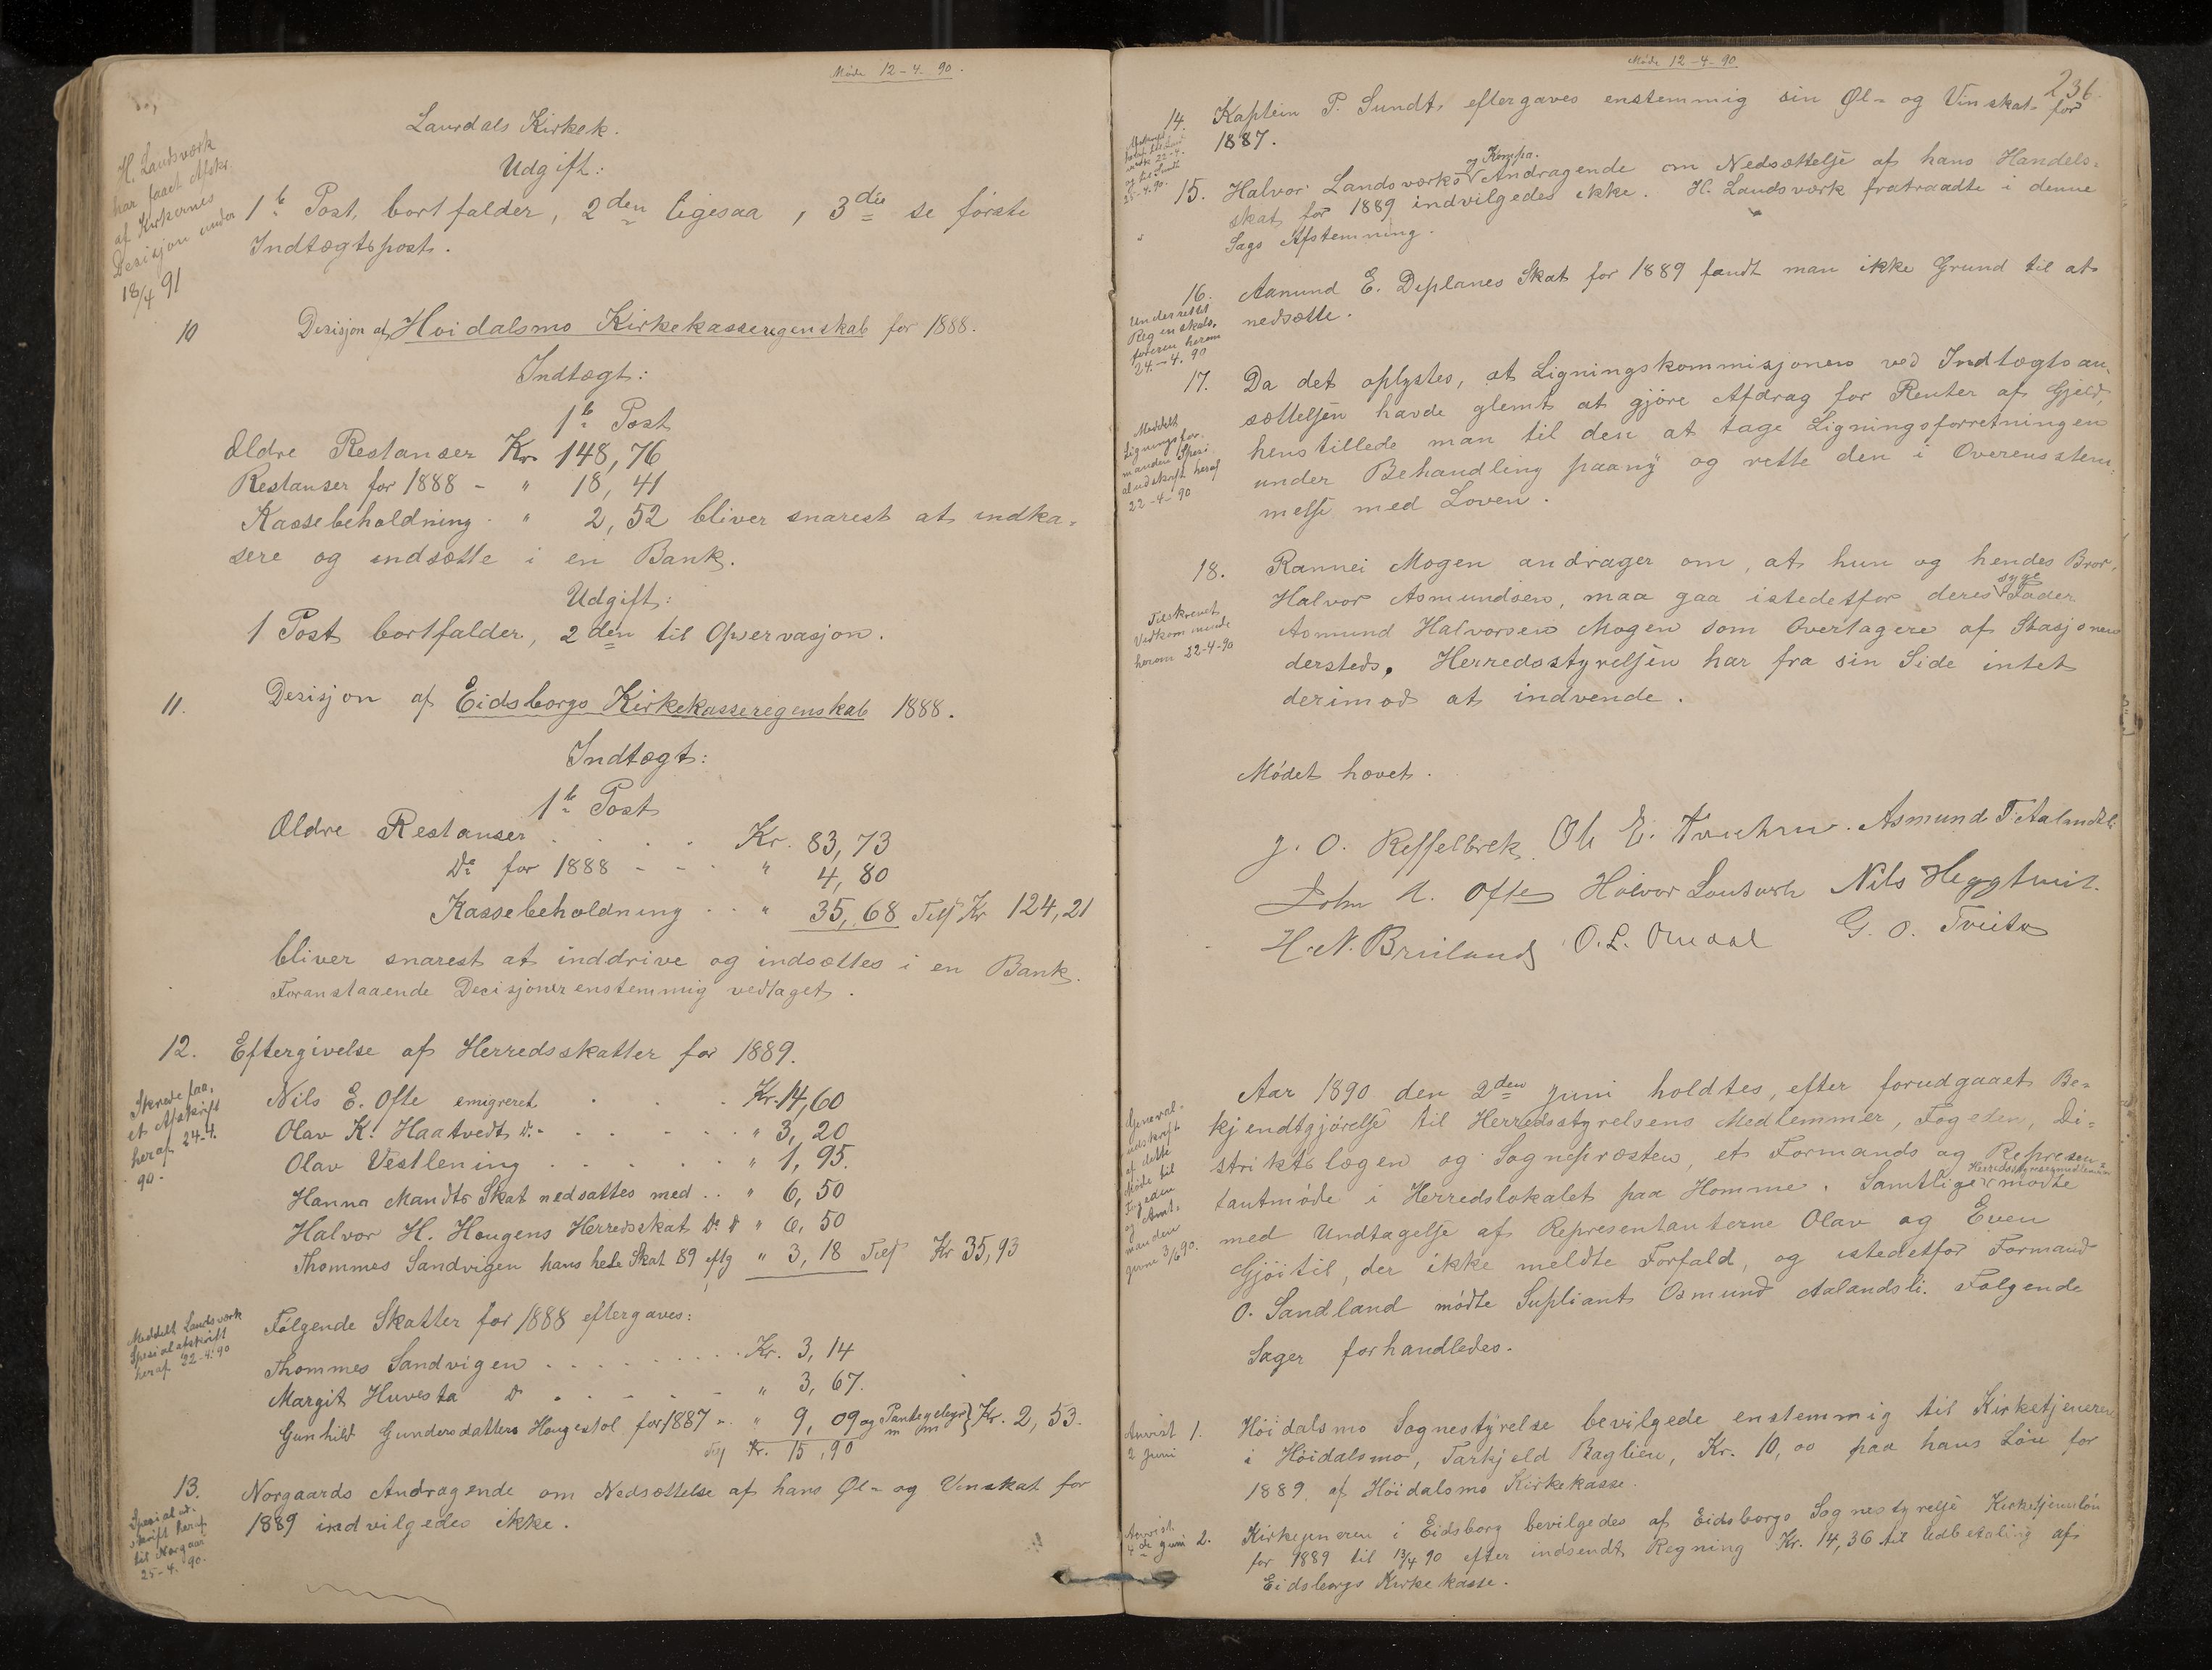 Møde 12-4. 90.
Laurdals Kirkek.
Udgift:
H. Landsværk
har faaet Afskr.
af Kirkernes
Desisjon under
18/4 91
1ste Post, bortfalder, 2den ligesaa, 3die se første
Indtægtspost.
10 Desisjon af Høidalsmo Kirkekasseregenskab for 1888.
Indtægt:
1ste Post
Ældre Restanser Kr. 148,76
Restanser for 1888 - " 18,41
Kassebeholdning . " 2,52 bliver snarest at indka-
sere og indsætte i en Bank.
Udgift:
1 Post bortfalder, 2den til Opservasjon.
11. Desisjon af Eidsborgs Kirkekasseregenskab 1888.
Indtægt:
1ste Post
Ældre Restanser . . . . Kr. 83,73
Do for 1888 - - - " 4,80
Kassebeholdning . . " 35,68 Tils Kr 124,21
bliver snarest at inddrive og indsættes i en Bank.
Foranstaaende Decisjoner enstemmig vedtaget.
12. Eftergivelse af Herredsskatter for 1889.
et Afskrift
heraf 24-4.
90.
Nils E. Ofte emigreret . . . Kr. 14,60
Olav K. Haatvedt do - . . . . " 3,20
Olav Vestlening . . . . . " 1,95.
Hanna Mandts Skat nedsattes med . . " 6,50
Halvor H. Haugens Herredsskat Do " 6,50
Thommes Sandvigen hans hele Skat 89 eftg " 3,18 Tils Kr 35,93
Meddelt Landsværk
Spesialafskrift
heraf 22-4.90
Følgende Skatter for 1888 eftergaves:
Thommes Sandvigen . . . . . . . . . Kr. 3,14
Margit Huvesta do . . - . - " 3,67.
Gunhild Gundersdatters Haugestøl for 1887 - " 9,09 og Pantegebyr m m } Kr. 2,53.
Tils Kr. 15,90
13. Norgaards Andragende om Nedsættelse af hans Øl- og Vinskat for
1889 indvilgedes ikke.
Spesialud-
skrift heraf
til Norgaar
25-4. 90.
Møde 12-4-90
236.
14. Kaptein P. Sundt, eftergaves enstemmig sin Øl- og Vinskat for
1887.
og til Sundt
25-4.90.
15. Halvor Landsværks og Kompa. Andragende om Nedsættelse af hans Handels-
skat for 1889 indvilgedes ikke. H. Landsværk fratraadte i denne
Sags Afstemning.
16. Aanund E. Deplanes Skat for 1889 fandt man ikke Grund til at
nedsætte.
Underrettet
Regenskabs-
føreren herom
24.-4. 90
17. Da det oplystes, at Ligningskommisjonen ved Indtægtsan-
sættelsen havde glemt at gjøre Afdrag for Renter af Gjeld,
henstillede man til den at tage Ligningsforretningen
under Behandling paany og rette den i Overensstem-
melse med Loven.
Meddelt
Ligningsfor-
manden Spesi
aludskrift heraf
22-4-90
18. Rannei Mogen andrager om, at hun og hendes Bror,
Halvor Asmundsen, maa gaa istedetfor deres syge Fader
Asmund Halvorsen Mogen som Overtagere af Skasjonen
dersteds. Herredsstyrelsen har fra sin Side intet
derimod at indvende.
Tilskrevet
Vedkommende
herom 22-4-90
Mødet hævet.
J. O. Resselbrek Ol. E. Asmund T. Aalandsli
John A. Ofte Halvor Landsverk Nils Heggtveit.
H. N. Bruland O. L. Omdal G. O. Tveito
Aar 1890 den 2den Juni holdtes, efter forudgaaet Be-
kjendtgjørelse til Herredsstyrelsens Medlemmer, Fogeden, Di-
striktslægen og Sognepræsten, et Formands og Represen-
tantmøde i Herredslokalet paa Homme. Samtlige Herredsstyresmedlemmer mødte
med Undtagelse af Representanterne Olav og Even
Gjøitil, der ikke meldte Forfald, og istedetfor Formand
O. Sandland mødte Supliant Osmund Aalandsli. Følgende
Sager forhandledes.
General-
udskrift
af dette
Møde til
Fogeden
og Amt-
manden
Juni 3/6 90.
Anvist
2 Juni
1. Høidalsmo Sognestyrelse bevilgede enstemmig til Kirketjeneren
i Høidalsmo, Tarkjeld Baglien, Kr. 10,00 paa hans Løn for
1889, af Høidalsmo Kirkekasse.
Anvist
4de Juni
2. Kirkejeneren i Eidsborg bevilgedes af Eidsborgs Sognestyrelse Kirketjennløn
for 1889 til 13/4 90 efter indsendt Regning Kr. 14,36 til Udbetaling af
Eidsborgs Kirkekasse.